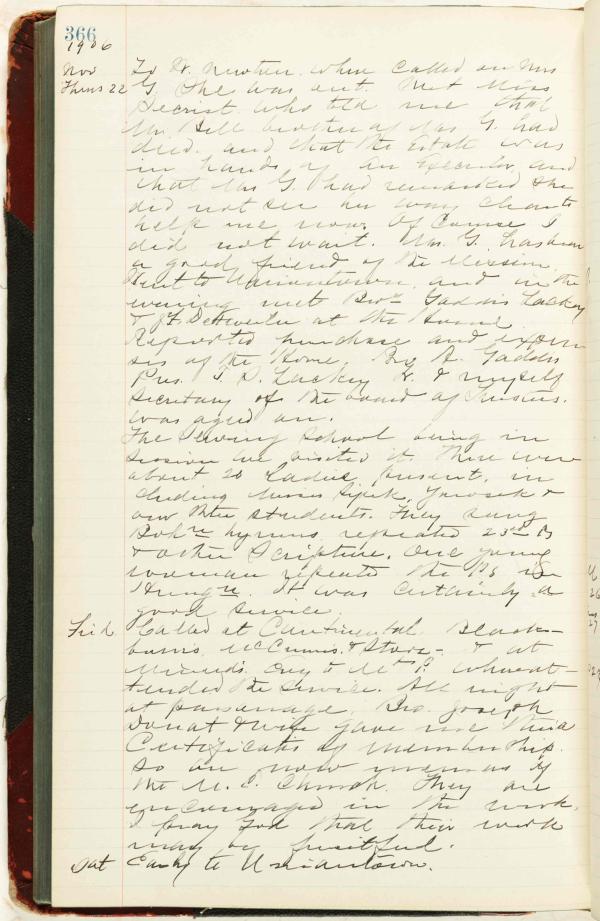 366
1906
Nov To W. Newton where called on Mrs
Thurs 22 G. She was out. Met Miss
Secrist who told me that
Mr. Bell brother of Mrs G. had
died. and that the Estate was
in hands of an Executor and
that Mrs G. had remarked she
did not see her way clear to
help me now. Of course I
did not wait. Mrs. G. has been
a good friend of the Mission.
Went to Uniontown and in the
evening met Bros Gaddis Lackey
& at the Home
Reported purchase and expen
ses of the Home. Bro A. Gaddis
Pres. T. S. Lackey & myself
Secretary of the board of Trustees.
was agreed on.
The Sewing School being in
Session we visited it. There were
about 20 Ladies present, in
cluding Misses &
our three students. They sang
Bohn hymns repeated 23rd Ps
& other Scripture. One young
woman repeated the Ps in
Hungn. It was certainly a
good service.
Frid Called at Continental. Black-
burns, McCrumis. & Stores- & at
Mt P. where at-
tended the service. All night
at parsonage. Bro. Joseph
Donat & wife gave me their
Certificates of membership.
so are now members of
the M. E. Church. They are
encouraged in the work.
I pray God that their work
may be fruitful.
Sat Early to Uniontown.